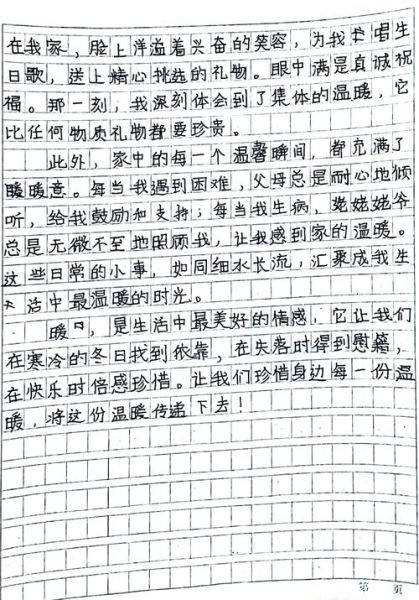 在我家，脸上洋溢着兴奋的笑容，为我唱生
日歌，送上精心挑选的礼物。眼中满是真诚祝
福。那一刻，我深刻体会到了集体的温暖，它
比任何物质礼物都要珍贵。
此外，家中的每一个温馨瞬间，都充满了
暖暖意。每当我遇到困难，父母总是耐心地倾
听，给我鼓励和支持；每当我生病，姥姥爷
总是无微不至地照顾我，让我感到家的温暖。
这些日常的小事，如同细水长流，汇聚成我生
活中最温暖的时光。
暖，是生活中最美好的情感，它让我们
在寒冷的冬日找到依靠，在失落时得到慰藉，
在快乐时倍感珍惜。让我们珍惜身边每一份温
暖，将这份温暖传递下去！
第 页